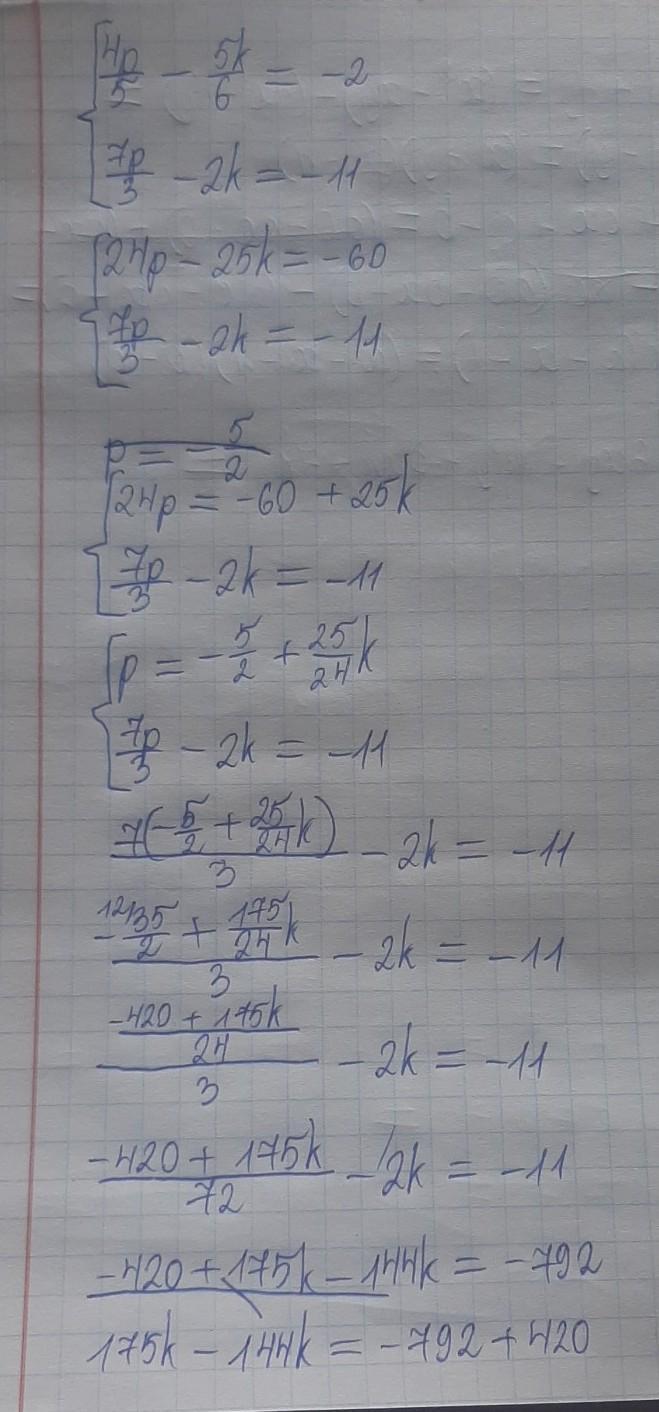 4p/5 - 5k/6 = -2
7p/3 - 2k = -11
24p - 25k = -60
7p/3 - 2k = -11
p = -5/2
24p = -60 + 25k
7p/3 - 2k = -11
p = -5/2 + 25/24 k
7p/3 - 2k = -11
7(-5/2 + 25/24 k)/3 - 2k = -11
(-12)35/2 + 175/24 k / 3 - 2k = -11
(-420 + 175k)/24 / 3 - 2k = -11
(-420 + 175k)/72 - 2k = -11
-420 + 175k - 144k = -792
175k - 144k = -792 + 420